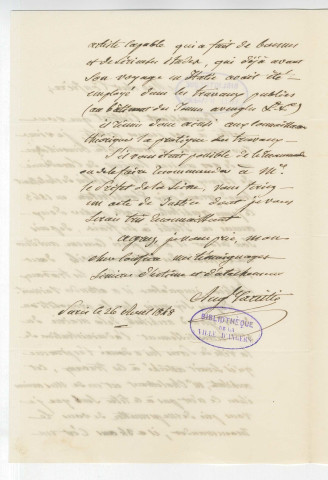 artiste capable qui a fait de bonnes
et de sérieuses études, qui déjà avant
son voyage en Italie avait été
employé dans les travaux publics
(au bâtiment des Jeunes aveugles
et réunir donc ainsi aux connaissances
théoriques la pratique des travaux.
S'il vous était possible de le recommander
ou de le faire recommander à Mr.
le Préfet de la Seine, vous feriez
un acte de justice dont je vous
serais très reconnaissant
agréez, je vous prie, mon
cher confrère, mes témoignages
sincères d'estime et d'attachement
Paris le 26 1848
BIBLIOTHÈQUE
DE LA
VILLE D'ANGERS